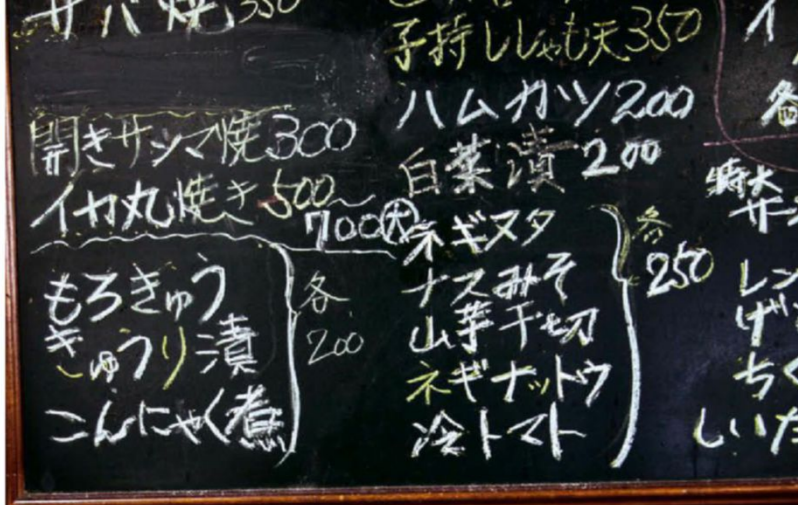 サバ焼350
開きサンマ焼300
イカ丸焼き500〜
700大
もろきゅう
きゅうり漬
こんにゃく煮
各
200
子持ししゃも天350
ハムカツ200
白菜漬200
ネギヌタ
ナスみそ
山芋千切
ネギナットウ
冷トマト
各
250
イ
各
特大
サー
レン
げ
ちく
しいた